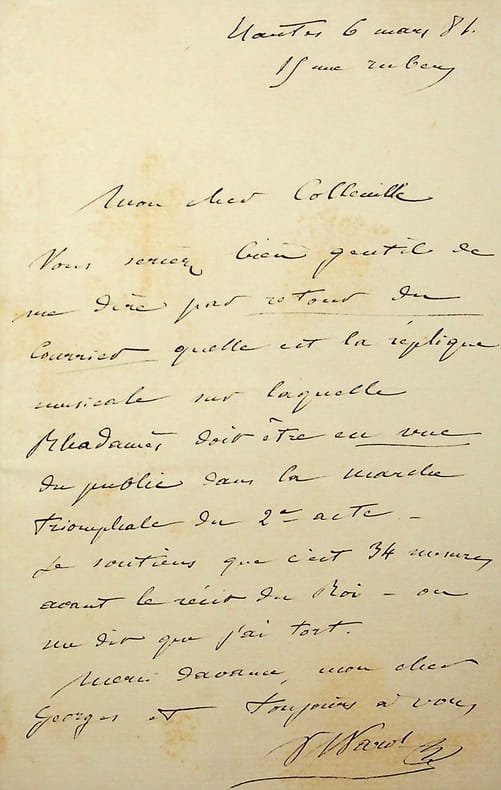 Nantes 6 mars 81.
15 rue rubens
Mon cher Colleuille
Vous seriez bien gentil de
me dire par retour du
Courrier quelle est la réplique
musicale sur laquelle
Rhadamès doit être en vue
du public dans la marche
triomphale du 2e acte –
Je soutiens que c'est 34 mesures
avant le récit du Roi – on
me dit que j'ai tort.
Merci d'avance, mon cher
Georges et toujours à vous
V Warot